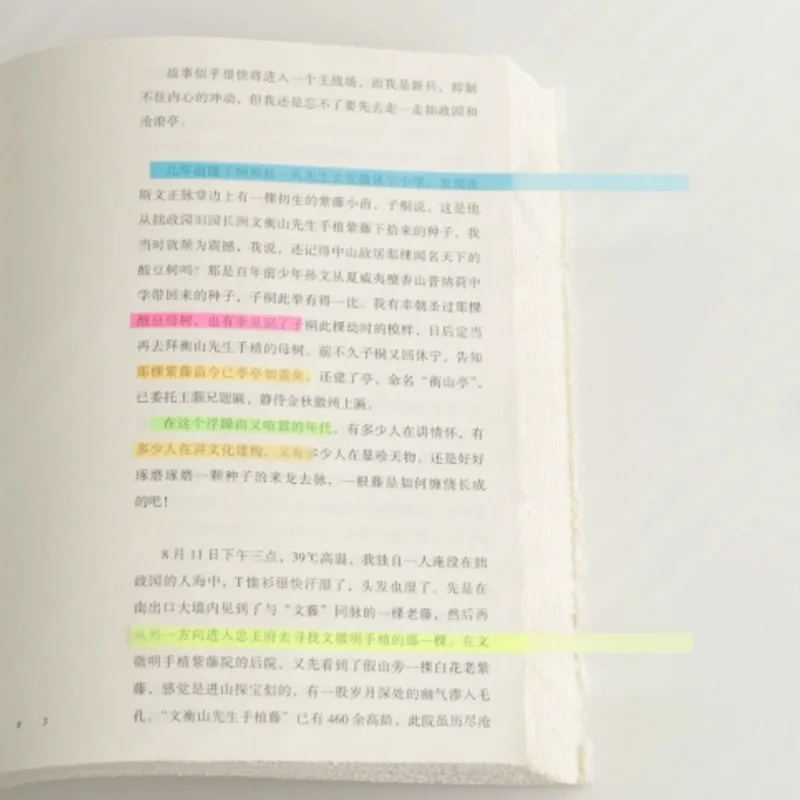 故事似乎很快将进入一个主战场，而我是新兵，抑制
不住内心的冲动，但我还是忘不了要先去走一走拙政园和
沧浪亭。
几年前随子桐和赵一凡先生去安徽休宁小学，发现在
斯文正脉堂边上有一棵初生的紫藤小苗，子桐说，这是他
从拙政园旧园长洲文衡山先生手植紫藤下拾来的种子，我
当时就颇为震撼，我说，还记得中山故居那棵闻名天下的
酸豆树吗？那是百年前少年孙文从夏威夷檀香山普纳荷中
学带回来的种子，子桐此举有得一比。我有幸朝圣过那棵
酸豆母树，也有幸见识了子桐此棵幼时的模样，日后定当
再去拜衡山先生手植的母树。前不久子桐又回休宁，告知
那棵紫藤苗今已亭亭如盖矣，还建了亭，命名“衡山亭”，
已委托王灏兄题匾，静待金秋徽州上匾。
在这个浮躁而又喧嚣的年代，有多少人在讲情怀，有
多少人在讲文化建构，又有多少人在暴殄天物，还是好好
琢磨琢磨一颗种子的来龙去脉，一根藤是如何缠绕长成
的吧！
8月11日下午三点，39℃高温，我独自一人淹没在拙
政园的人海中，T恤衫很快汗湿了，头发也湿了。先是在
南出口大墙内见到了与“文藤”同脉的一棵老藤，然后再
从另一方向进入忠王府去寻找文徵明手植的那一棵。在文
徵明手植紫藤院的后院，又先看到了假山旁一棵白花老紫
藤，感觉是进山探宝似的，有一股岁月深处的幽气渗入毛
孔。“文衡山先生手植藤”已有460余高龄，此院虽历尽沧
3